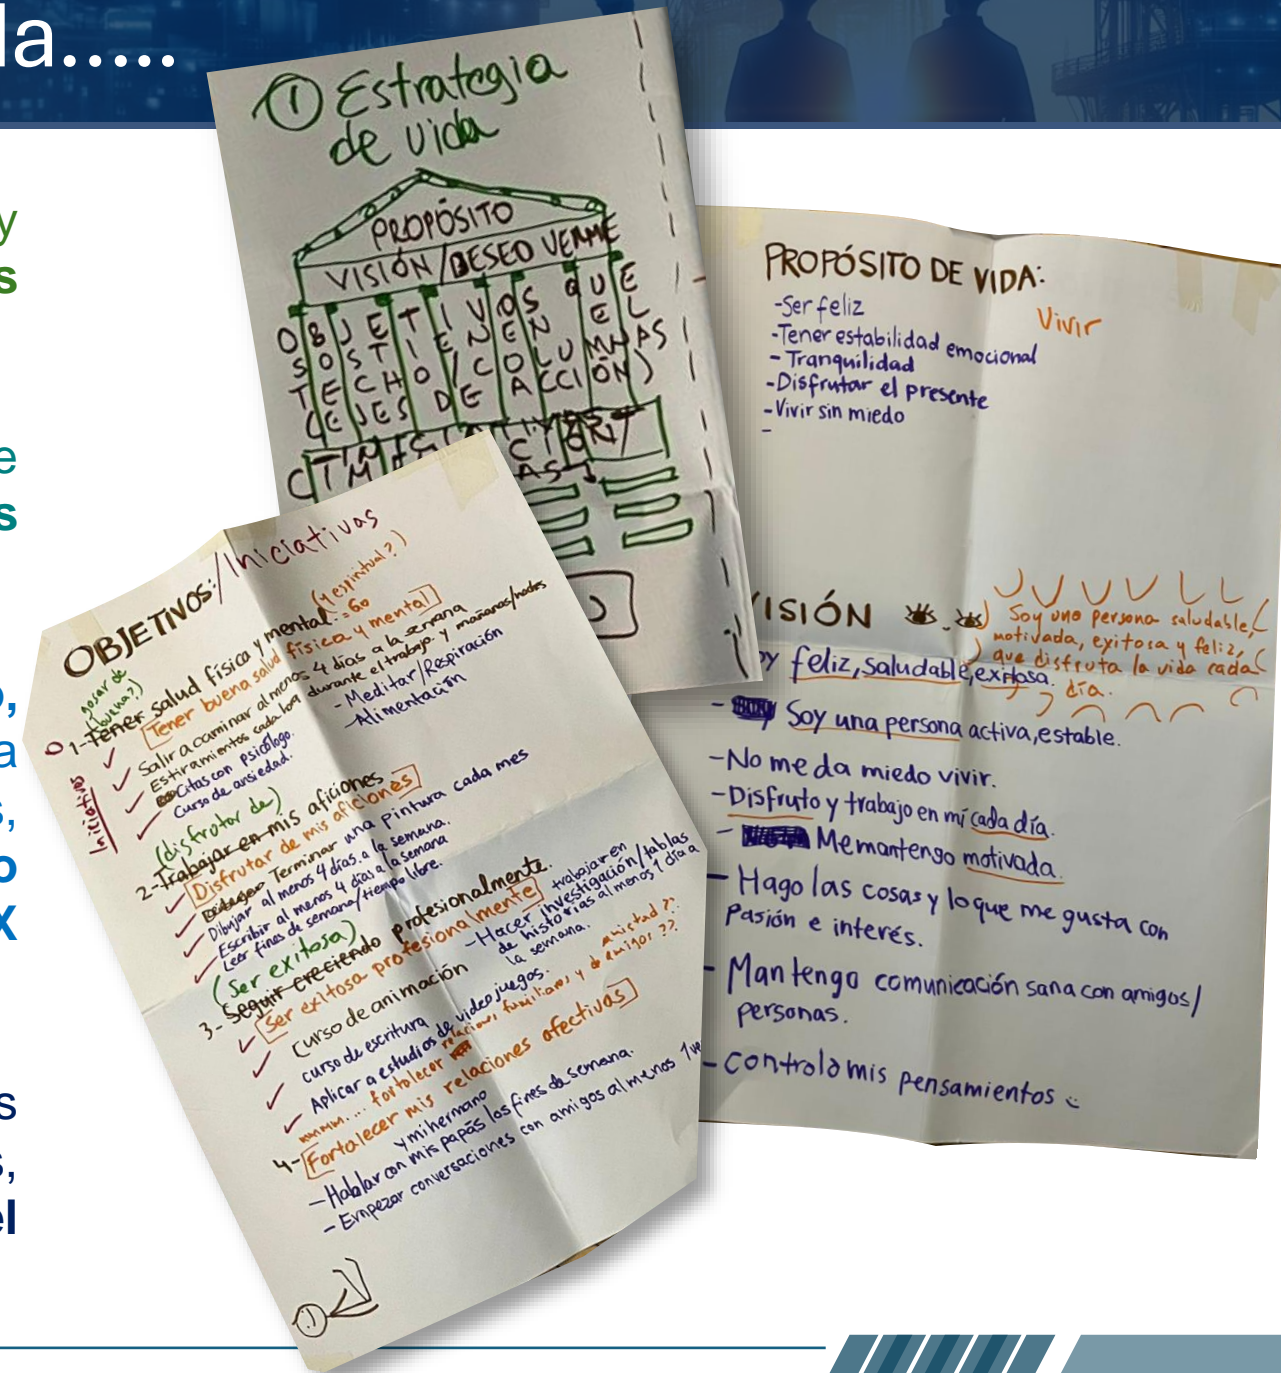 la.....
y
s
e
s
o,
a
s,
o
X
s
s,
el
① Estrategia
de vida
PROPÓSITO
VISIÓN/DESEO VERME
OBJETIVOS QUE
SOSTIENEN EL
TECHO/(COLUMNAS
(EJES DE ACCIÓN)
PROPÓSITO DE VIDA:
Vivir
-Ser feliz
-Tener estabilidad emocional
- Tranquilidad
-Disfrutar el presente
-Vivir sin miedo
-
VISIÓN
Soy una persona saludable,
motivada, exitosa y feliz,
que disfruta la vida cada
día.
oy feliz, saludable, exitosa.
- Soy una persona activa, estable.
-No me da miedo vivir.
-Disfruto y trabajo en mí cada día.
- Me mantengo motivada.
- Hago las cosas y lo que me gusta con
Pasión e interés.
- Mantengo comunicación sana con amigos/
personas.
- controlo mis pensamientos
OBJETIVOS:/Iniciativas
(y espiritual?)
gosar de
(buena?)
1-Tener salud física y mental.
Tener buena salud física y mental
Iniciativas
Salir a caminar al menos 4 días a la semana
Estiramientos cada hora durante el trabajo y mañanas/noches
Citas con psicólogo.
Curso de ansiedad.
-Meditar/Respiración
-Alimentación
(disfrutar de)
2-Trabajar en mis aficiones
Disfrutar de mis aficiones
Terminar una pintura cada mes
Dibujar al menos 4 días a la semana.
Escribir al menos 4 días a la semana
Leer fines de semana/tiempo libre.
(Ser exitosa)
3- Seguir creciendo profesionalmente.
Ser exitosa profesionalmente
Curso de animación
curso de escritura
Aplicar a estudios de videojuegos.
-Hacer investigación/tablas
trabajar en
de historias al menos 1 día a
la semana.
fortalecer relacions familiares y de amigos??
amistad?
4-Fortalecer mis relaciones afectivas
y mi hermano
-Hablar con mis papás los fines de semana.
- Empezar conversaciones con amigos al menos 1 ve